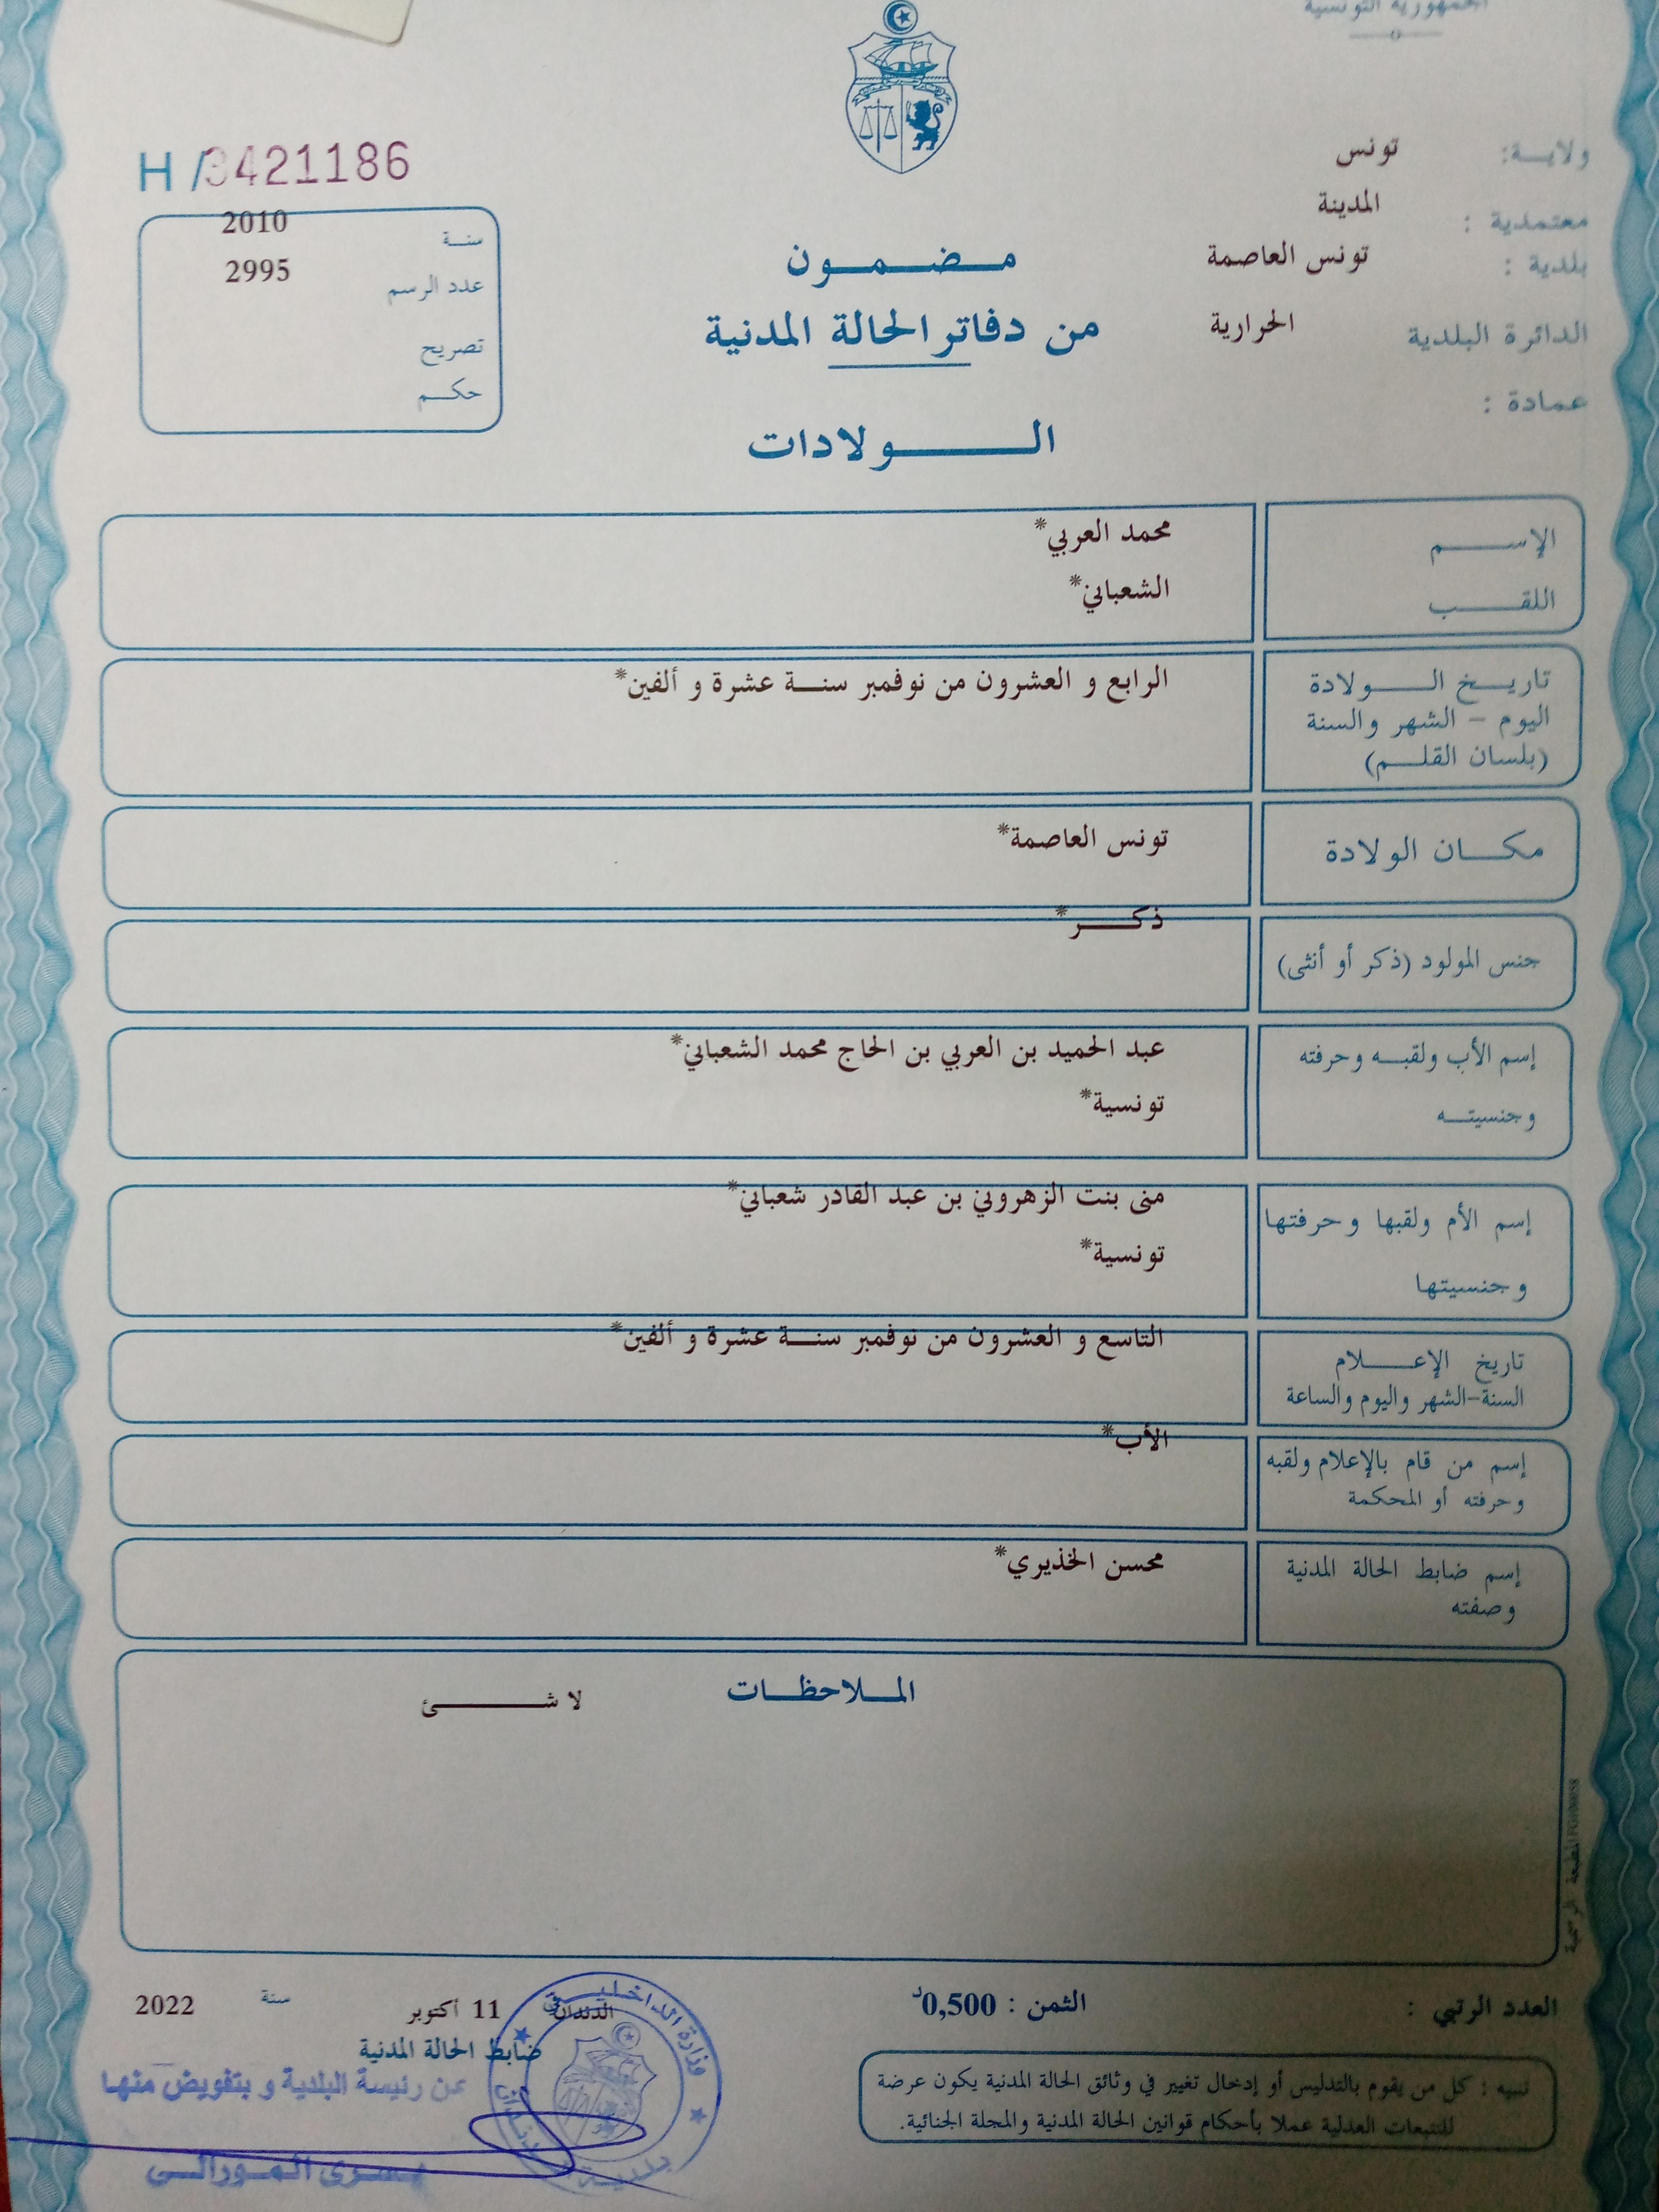 الجمهورية التونسية
ولاية: تونس
معتمدية : المدينة
بلدية : تونس العاصمة
الدائرة البلدية الحرارية
عمادة :
H /3421186
سنة 2010
عدد الرسم 2995
تصريح
حكم
مضمون
من دفاتر الحالة المدنية
الولادات
الإسم محمد العربي*
اللقب الشعباني*
تاريخ الولادة الرابع و العشرون من نوفمبر سنة عشرة و ألفين*
اليوم - الشهر والسنة
(بلسان القلم)
مكان الولادة تونس العاصمة*
جنس المولود (ذكر أو أنثى) ذكر*
إسم الأب ولقبه وحرفته عبد الحميد بن العربي بن الحاج محمد الشعباني*
وجنسيته تونسية*
إسم الأم ولقبها وحرفتها منى بنت الزهروني بن عبد القادر شعباني*
وجنسيتها تونسية*
تاريخ الإعلام التاسع و العشرون من نوفمبر سنة عشرة و ألفين*
السنة-الشهر واليوم والساعة
إسم من قام بالإعلام ولقبه الأب*
وحرفته أو المحكمة
إسم ضابط الحالة المدنية محسن الخذيري*
وصفته
الملاحظات لا شئ
المطبعة الرسمية
العدد الرتبي :
الثمن : 0,500د
الدندان في 11 أكتوبر سنة 2022
ضابط الحالة المدنية
عن رئيسة البلدية و بتفويض منها
وزارة الداخلية
بلدية الدندان
تنبيه : كل من يقوم بالتدليس أو إدخال تغيير في وثائق الحالة المدنية يكون عرضة
للتتبعات العدلية عملا بأحكام قوانين الحالة المدنية والمجلة الجنائية.